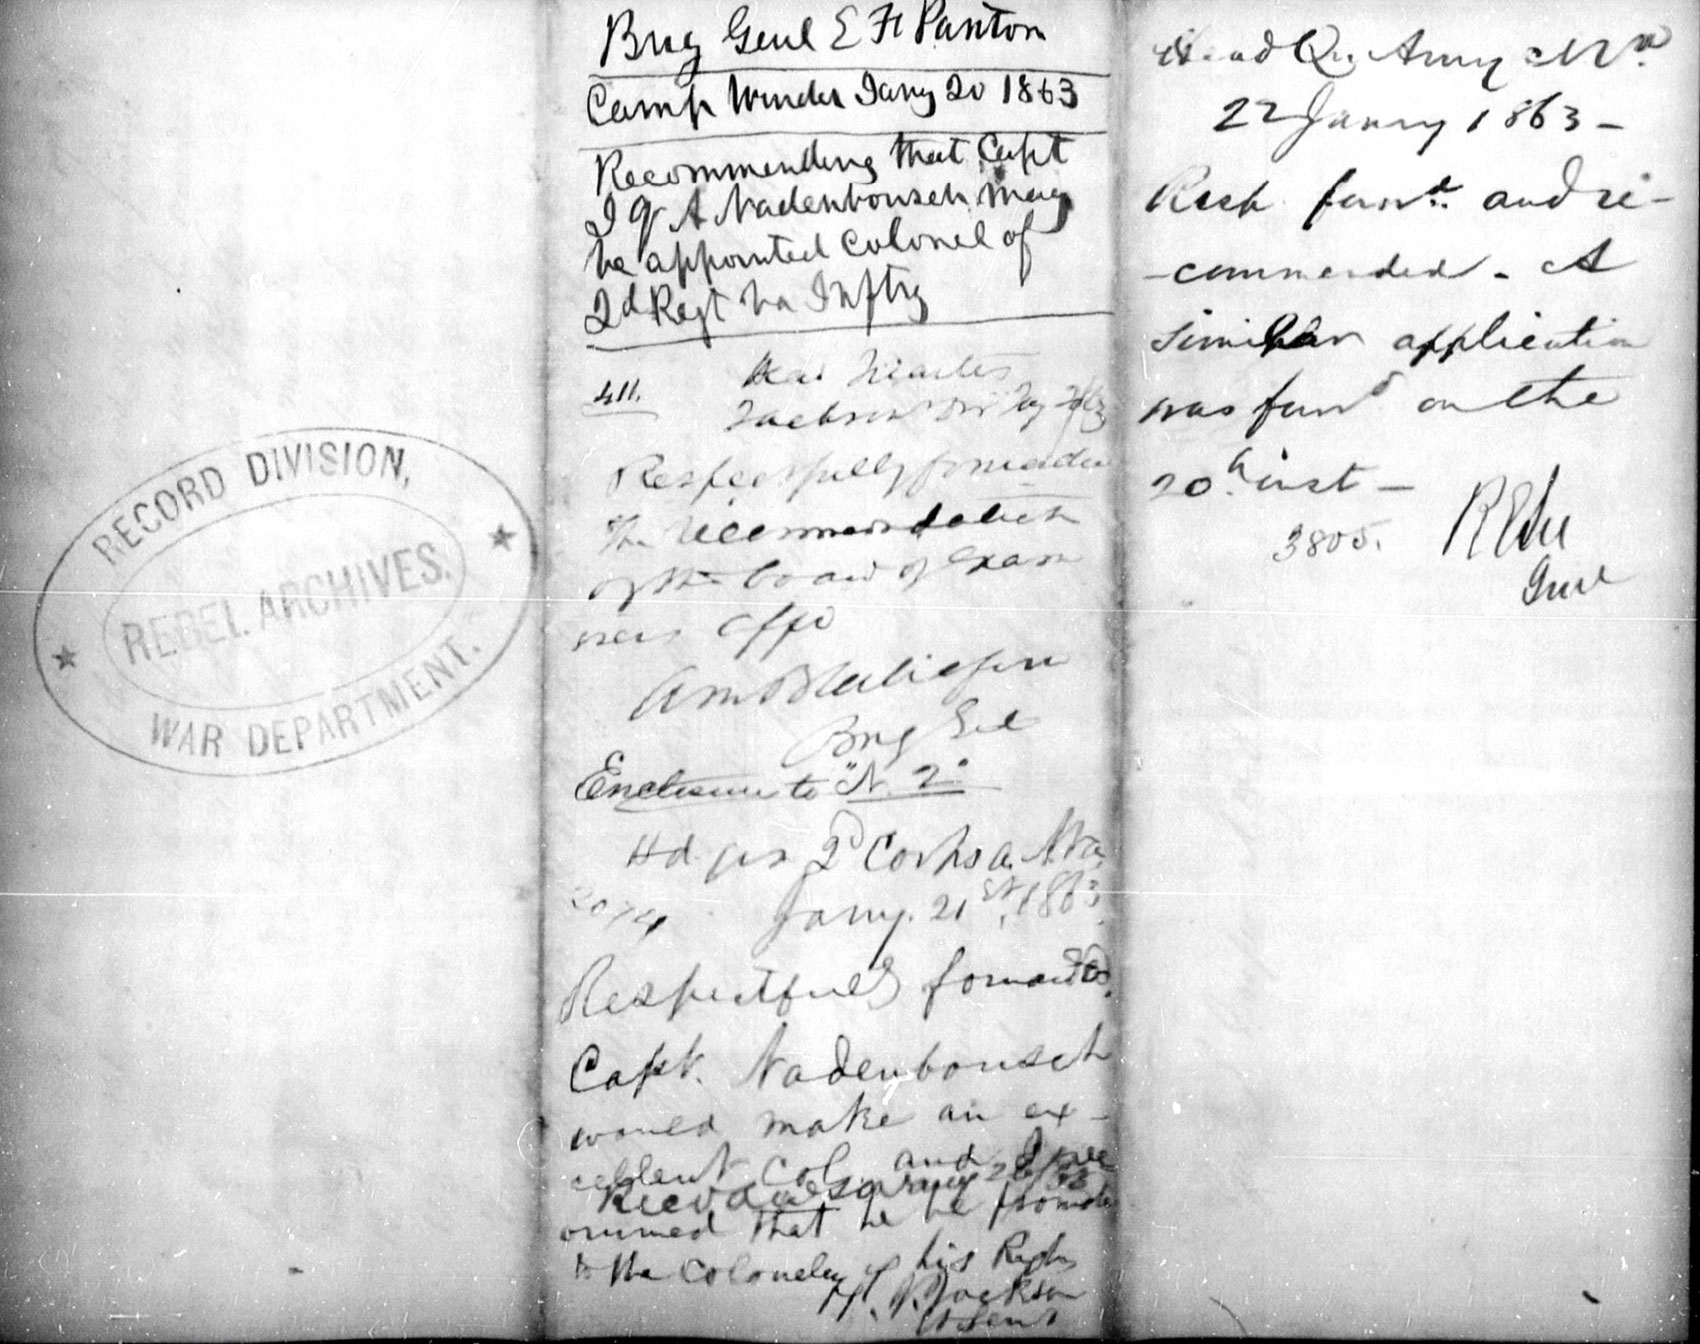 RECORD DIVISION,
REBEL ARCHIVES.
WAR DEPARTMENT.
Brig Genl E F Paxton
Camp Winder Jany 20 1863
Recommending that Capt
J Q A Nadenbousch may
be appointed Colonel of
2d Regt Va Inftry
Head Quarters
Jackson's Div Jany
Respectfully forwarded
the recommendation
of the board of Exam
Brig Gel
Enclosure to "N. 2"
Hd qrs 2d Corps A. N. Va.
Jany. 21st, 1863
Respectfully forwarded.
Capt. Nadenbousch
would make an ex-
cellent Col. and I rec
Recd A & I G O Jany 26/63
ommend that he be promoted
to the Colonelcy of his Regt
T. J. Jackson
Lt Genl
Head Qrs Army N Va
22 Janry 1863 -
Resp. forwd. and re-
-commended - A
similar application
was forwd on the
20th inst -
3805.
R E Lee
Genl